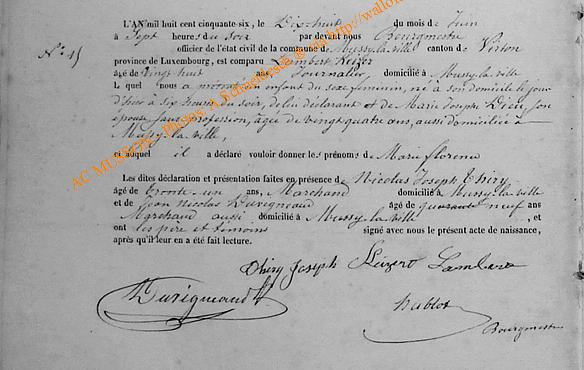 L'AN mil huit cent cinquante-six, le Dix huit du mois de Juin
N° 45 à Sept heures du soir par devant nous Bourgmestre
officier de l'état civil de la commune de Mussy-la-ville canton de Virton
province de Luxembourg, est comparu Lambert
âgé de vingt huit ans, Journalier domicilié à Mussy-la-ville
L quel nous a présenté un enfant du sexe féminin, né à son domicile le jour
d'hier à six heures du soir, de lui déclarant et de Marie Joseph son
épouse sans profession, âgée de vingt quatre ans, aussi domiciliée à
Mussy la ville,
et auquel il a déclaré vouloir donner les prénoms de Marie
Les dites déclaration et présentation faites en présence de Nicolas Joseph Thiry
âgé de trente-un ans, Marchand domicilié à Mussy-la-ville
et de Jean Nicolas Duvigneaud âgé de quarante neuf ans
Marchand aussi domicilié à Mussy-la-ville, et
ont les père et témoins signé avec nous le présent acte de naissance,
après qu'il leur en a été fait lecture.
Thiry Joseph Lambert
Duvigneaud
hablot
Bourgmestre
AC MUSSON - Photos